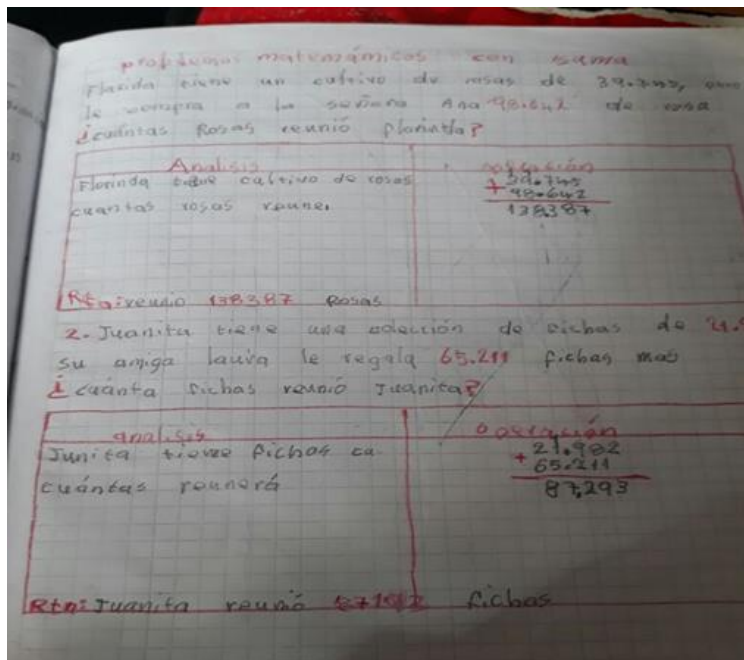 problemas matemámicos con suma
Florida tiene un cultivo de rosas de 39.745,
le compra a la señora Ana 98.642 de rosa
¿cuántas Rosas reunió plorinda?
Analisis
operación
Florinda tiene cultivo de rosas
cuantas rosas reune.
39.745
+ 98.642
138387
Rta: reunio 138387 Rosas
2. Juanita tiene una colección de fichas de
su amiga laura le regala 65.211 fichas mas
¿cuánta fichas reunió Juanita?
analisis
operación
Junita tieme fichos ca
cuántas reunerá
21.982
+ 65.211
87,293
Rta: Juanita reunió fichas